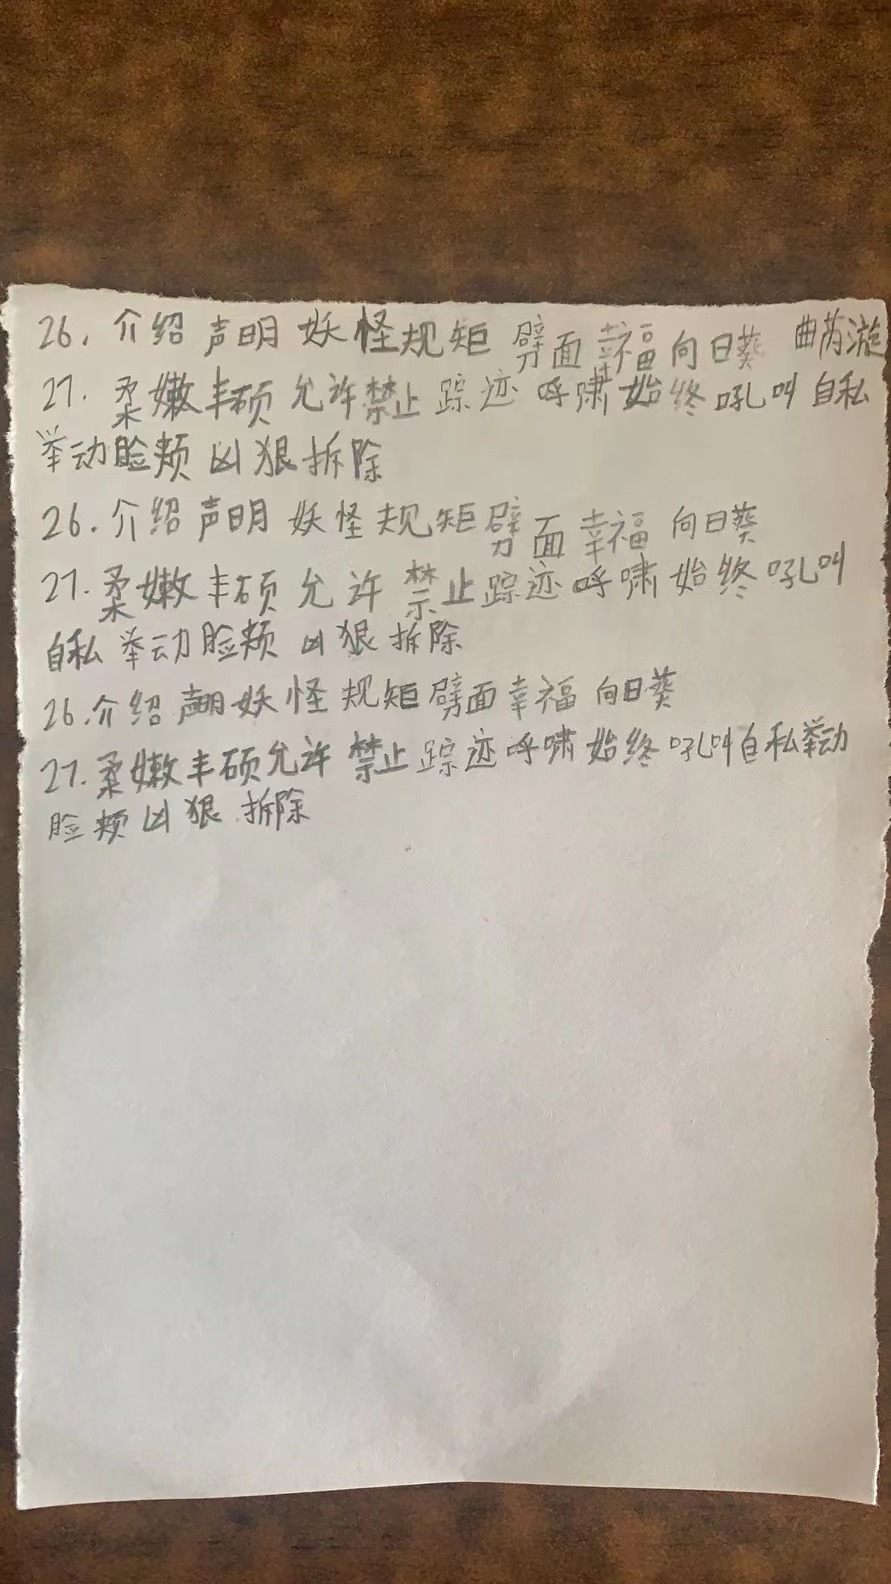 26. 介绍 声明 妖怪规矩 劈面 幸福 向日葵 曲芮漩
27. 柔嫩丰硕 允许禁止 踪迹 呼啸 始终 吼叫 自私
举动脸颊 凶狠拆除
26. 介绍 声明 妖怪 规矩劈面 幸福 向日葵
27. 柔嫩 丰硕 允许 禁止踪迹 呼啸 始终 吼叫
自私 举动脸颊 凶狠 拆除
26. 介绍 声明妖怪 规矩劈面 幸福 向日葵
27. 柔嫩丰硕允许 禁止 踪迹 呼啸 始终 吼叫自私举动
脸颊 凶狠 拆除